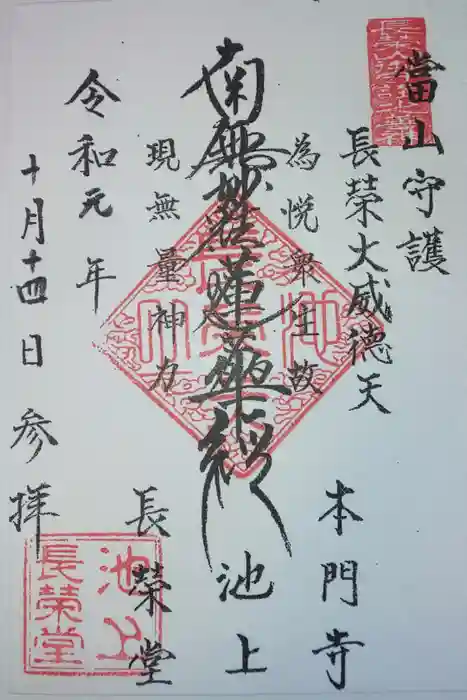 當山守護
長榮大威徳天
為悦衆生故
南無妙法蓮華経
現無量神力
令和元年
十月十四日 参拝
本門寺
池上
長榮堂
池上
長榮堂